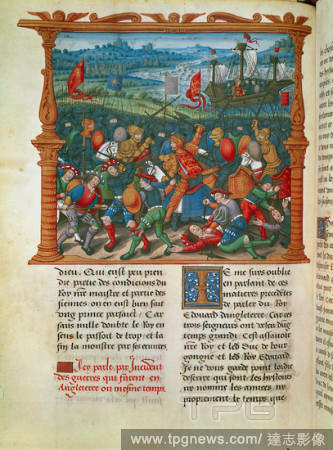 dieu. Qui eust peu pren
dre partie des condicions du
Roy nre maistre et partie des
siennes on en eust bien fait
ung prince parfaict Car
sans nulle doubte le Roy en
sens le passoit de trop et la
fin la monstre par ses euures
Icy parle par Incident
des guerres qui furent en
Angleterre ou mesme temps
E me suis oublie
en parlant de ces
matieres precedetes
de parler du Roy
Edouard dangleterre Car ces
trois seigneurs ont vescu dung
temps grans Cest assauoir
nre Roy et le duc de bour
gongne et led Roy Edouard
Je ne vous garde point lordre
descrire qui font les hystoires
ne nomme les annees ny
proprement le temps que
TPG
www.tpgnews.com / 達志影像